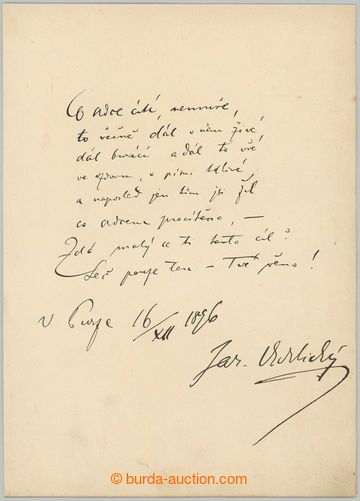 Co srdce cítí, neumírá,
to věčně dál v něm živé,
dál burácí a dál to vře
ve zvonu, v písni tklivé,
a naposled jen tím jsi žil
co srdcem procítěno, —
Zdá malý se ti tento cíl?
Leč pouze ten — Tvé věno!
V Praze 16/XII 1896
Jar. Vrchlický
© burda-auction.com